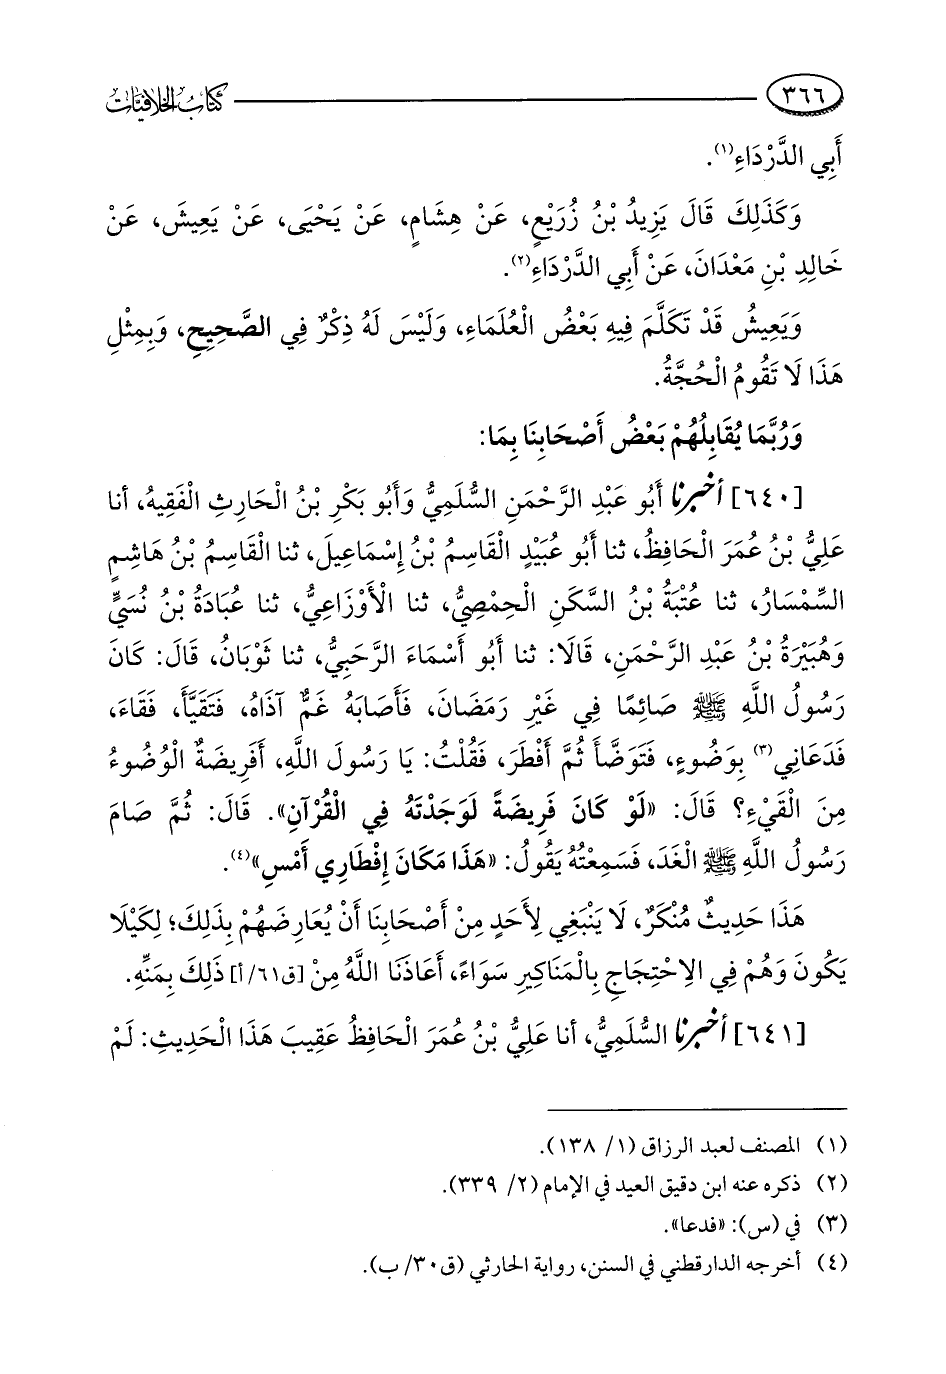 ٣٦٦ كتاب الخلافيات
أَبِي الدَّرْدَاءِ(١).
وَكَذَلِكَ قَالَ يَزِيدُ بْنُ زُرَيْعٍ، عَنْ هِشَامٍ، عَنْ يَحْيَى، عَنْ يَعِيشَ، عَنْ
خَالِدِ بْنِ مَعْدَانَ، عَنْ أَبِي الدَّرْدَاءِ(٢).
وَيَعِيشُ قَدْ تَكَلَّمَ فِيهِ بَعْضُ الْعُلَمَاءِ، وَلَيْسَ لَهُ ذِكْرٌ فِي الصَّحِيحِ، وَبِمِثْلِ
هَذَا لَا تَقُومُ الْحُجَّةُ.
وَرُبَّمَا يُقَابِلُهُمْ بَعْضُ أَصْحَابِنَا بِمَا:
[٦٤٠] أخبرنا أَبُو عَبْدِ الرَّحْمَنِ السُّلَمِيُّ وَأَبُو بَكْرِ بْنُ الْحَارِثِ الْفَقِيهُ، أنا
عَلِيُّ بْنُ عُمَرَ الْحَافِظُ، ثنا أَبُو عُبَيْدٍ الْقَاسِمُ بْنُ إِسْمَاعِيلَ، ثنا الْقَاسِمُ بْنُ هَاشِمٍ
السِّمْسَارُ، ثنا عُتْبَةُ بْنُ السَّكَنِ الْحِمْصِيُّ، ثنا الْأَوْزَاعِيُّ، ثنا عُبَادَةُ بْنُ نُسَيٍّ
وَهُبَيْرَةُ بْنُ عَبْدِ الرَّحْمَنِ، قَالَا: ثنا أَبُو أَسْمَاءَ الرَّحَبِيُّ، ثنا ثَوْبَانُ، قَالَ: كَانَ
رَسُولُ اللَّهِ ﷺ صَائِمًا فِي غَيْرِ رَمَضَانَ، فَأَصَابَهُ غَمٌّ آذَاهُ، فَتَقَيَّأَ، فَقَاءَ،
فَدَعَانِي(٣) بِوَضُوءٍ، فَتَوَضَّأَ ثُمَّ أَفْطَرَ، فَقُلْتُ: يَا رَسُولَ اللَّهِ، أَفَرِيضَةٌ الْوُضُوءُ
مِنَ الْقَيْءِ؟ قَالَ: «لَوْ كَانَ فَرِيضَةً لَوَجَدْتَهُ فِي الْقُرْآنِ». قَالَ: ثُمَّ صَامَ
رَسُولُ اللَّهِ ﷺ الْغَدَ، فَسَمِعْتُهُ يَقُولُ: «هَذَا مَكَانَ إِفْطَارِي أَمْسِ»(٤).
هَذَا حَدِيثٌ مُنْكَرٌ، لَا يَنْبَغِي لِأَحَدٍ مِنْ أَصْحَابِنَا أَنْ يُعَارِضَهُمْ بِذَلِكَ؛ لِكَيْلَا
يَكُونَ وَهُمْ فِي الِاحْتِجَاجِ بِالْمَنَاكِيرِ سَوَاءً، أَعَاذَنَا اللَّهُ مِنْ [ق٦١/أ] ذَلِكَ بِمَنِّهِ.
[٦٤١] أخبرنا السُّلَمِيُّ، أنا عَلِيُّ بْنُ عُمَرَ الْحَافِظُ عَقِيبَ هَذَا الْحَدِيثِ: لَمْ
(١) المصنف لعبد الرزاق (١/ ١٣٨).
(٢) ذكره عنه ابن دقيق العيد في الإمام (٢/ ٣٣٩).
(٣) في (س): «فدعا».
(٤) أخرجه الدارقطني في السنن، رواية الحارثي (ق٣٠/ ب).